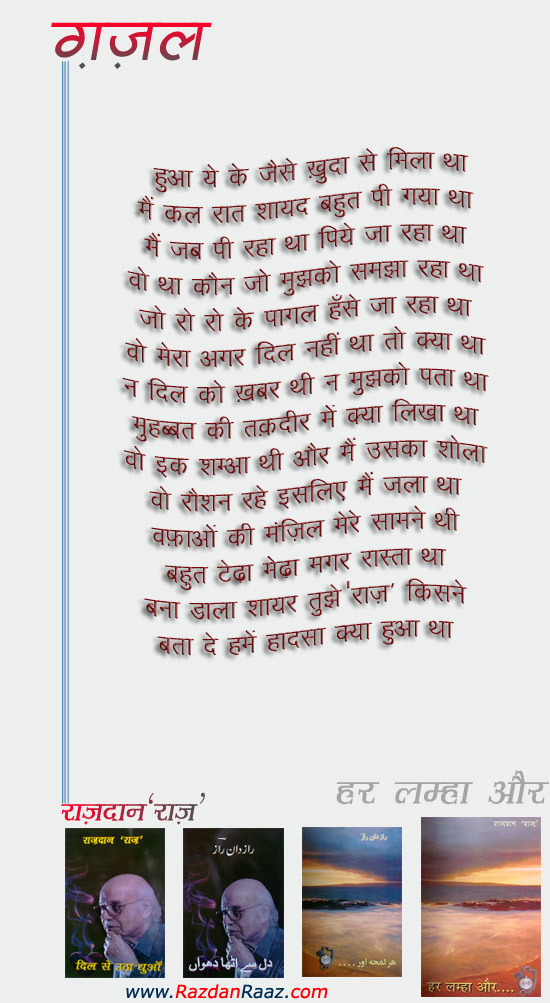 ग़ज़ल
हुआ ये के जैसे ख़ुदा से मिला था
मैं कल रात शायद बहुत पी गया था
मैं जब पी रहा था पिये जा रहा था
वो था कौन जो मुझको समझा रहा था
जो रो रो के पागल हँसे जा रहा था
वो मेरा अगर दिल नहीं था तो क्या था
न दिल को ख़बर थी न मुझको पता था
मुहब्बत की तक़दीर में क्या लिखा था
वो इक शम्आ थी और मैं उसका शोला
वो रौशन रहे इसलिए मैं जला था
वफ़ाओं की मंज़िल मेरे सामने थी
बहुत टेढ़ा मेढ़ा मगर रास्ता था
बना डाला शायर तुझे 'राज़’ किसने
बता दे हमें हादसा क्या हुआ था
हर लम्हा और
राज़दान‘राज़’
राज़दान ‘राज़’
दिल से उठा धुआँ
رازدان راز
دل سے اٹھا دھواں
رازدان راز
ہر لمحہ اور ....
राज़दान ‘राज़’
हर लम्हा और....
www.RazdanRaaz.com